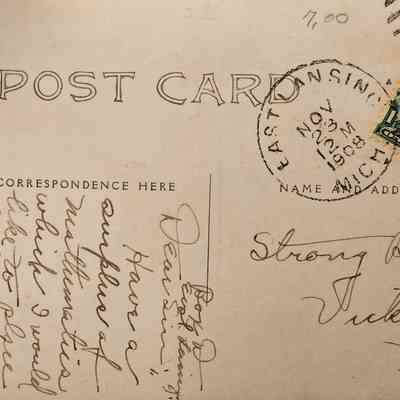 7,00
POST CARD
EAST LANSING
NOV
23
12 M
1908
MICH
CORRESPONDENCE HERE
NAME AND ADD
Box D
East Lansing
Dear Sir,
Have a
surplus of
mathematics
which I would
like to place
Strong